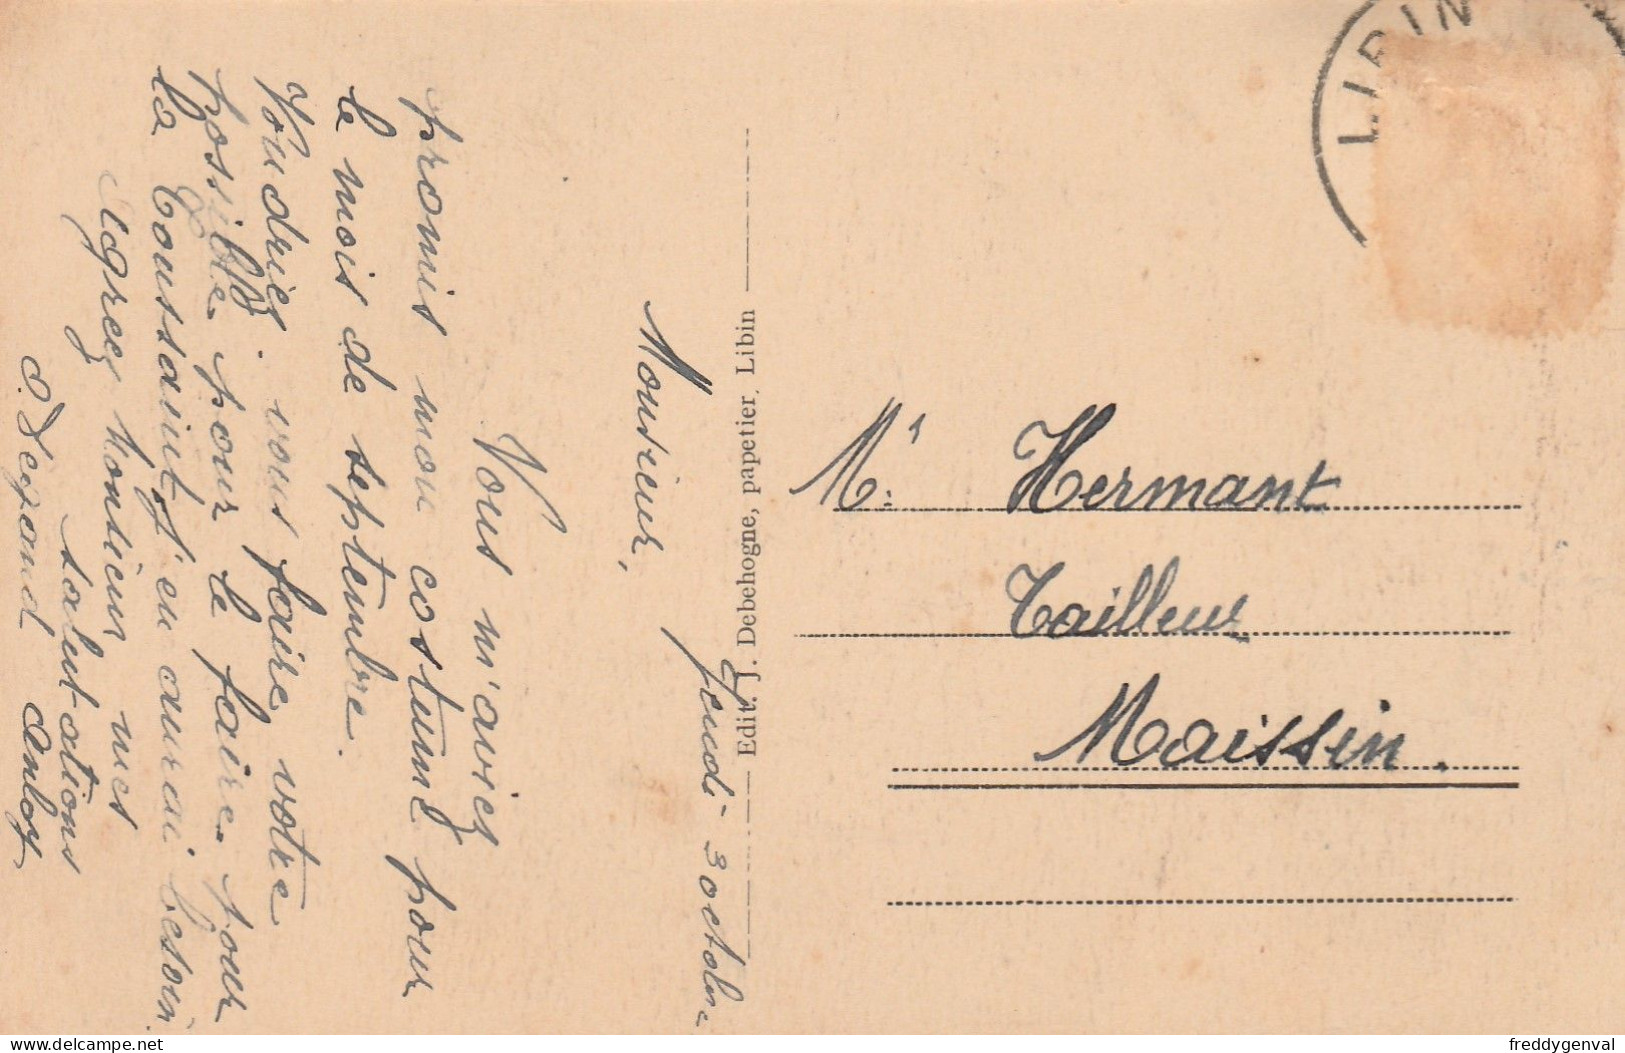 Jeudi 3 octobre
Monsieur,
Vous m'aviez
promis mon costume pour
le mois de septembre.
Voudriez vous faire votre
possible pour le faire pour
la Toussaint j'en aurai besoin.
Agréez Monsieur mes
salutations
Anloy
LIBIN
Mr. Hermant
Tailleur
Maissin.
Edit. J. Debehogne, papetier, Libin
https://www.delcampe.net
freddygenval